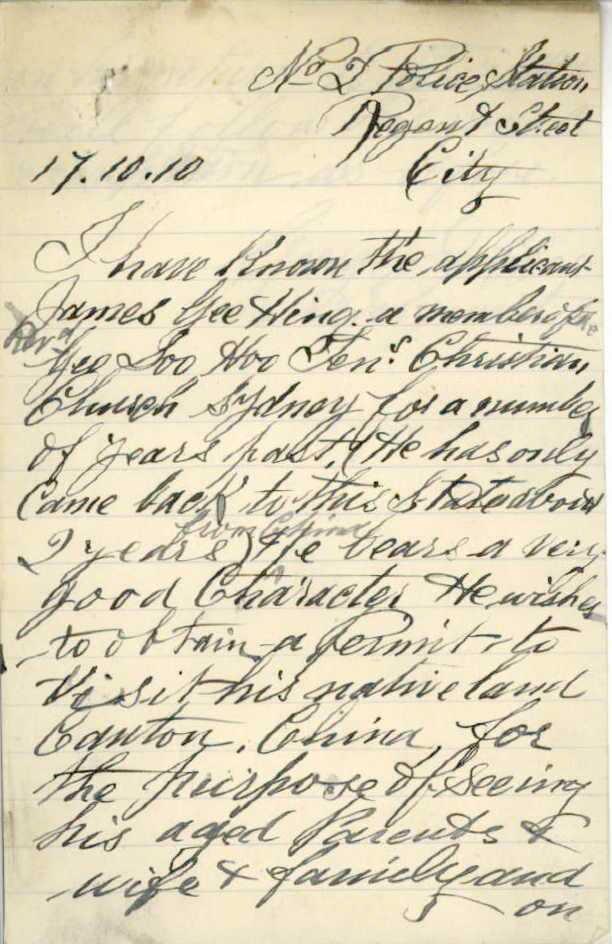 No 2 Police Station
Regent Street
17.10.10 City
I have known the applicant
James Gee Hing. a member of the
Revd
Yee Soo Hoo Ten's Christian
Church Sydney for a number
of years past. (He has only
Came back to this State about
from China
2 years) He bears a very
good Character He wishes
to obtain a Permit to
Visit his native land
Canton, China, for
the purpose of seeing
his aged Parents &
wife & family and
on